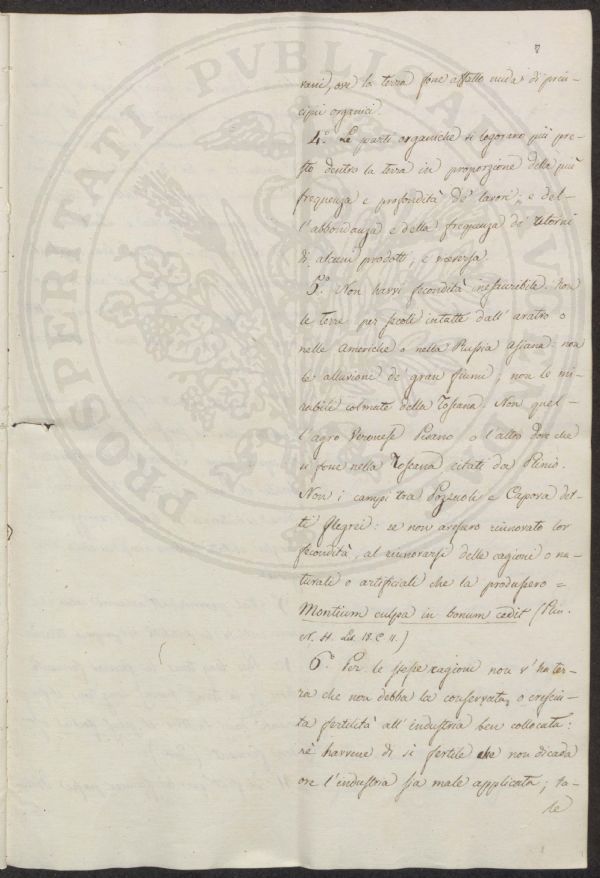 7
vani, ove la terra fosse affatto nuda di prin-
cipii organici.
4.° Le parti organiche si logorano più pre-
sto dentro la terra in proporzione della più
frequenza e profondità de' lavori; e del-
l'abbondanza e della frequenza de' ritorni
di alcuni prodotti, e viceversa.
5.° Non havvi fecondità inesauribile. Non
le terre per secoli intatte dall'aratro o
nelle Americhe o nella Russia assiana: non
le alluvioni de' gran fiumi; non le mi-
rabili colmate della Toscana. Non quel-
l'agro Veronese Pisano o l'altro don che
si fone nella Toscana citati da Plinio.
Non i campi tra Pozzuoli e Capova det-
ti flegrei: se non avessero rinnovato lor
fecondità, al rinnovarsi delle cagioni o na-
turali o artificiali che la produssero =
Montium culpa in bonum cedit (Plin.
N. H. Lib. 18. C. 11.)
6.° Per le stesse ragioni non v'ha ter-
ra che non debba la conservata, o cresciu-
ta fertilità all'industria ben collocata:
nè havvene di sì fertile che non dicada
ove l'industria sia male applicata; ta-
le
PROSPERITATI PVBLICAE AVGENDAE